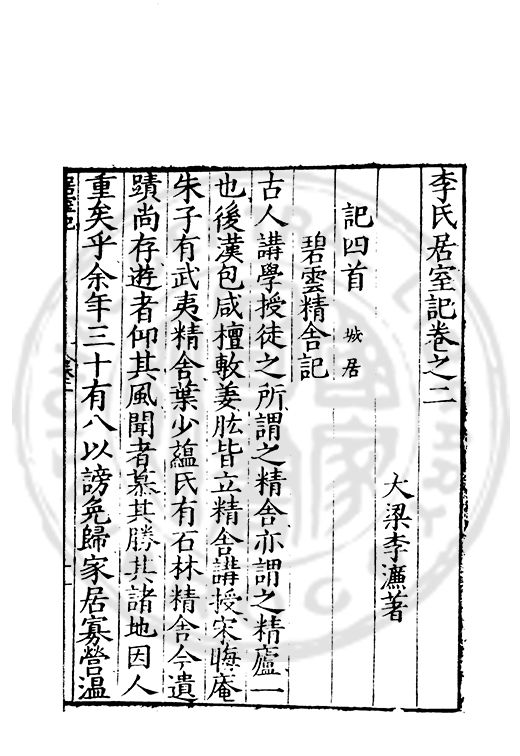 李氏居室記卷之二
大梁李濂著
記四首 城居
碧雲精舍記
古人講學授徒之所謂之精舍亦謂之精廬一
也後漢包咸檀敷姜肱皆立精舍講授宋晦庵
朱子有武夷精舍葉少蘊氏有石林精舍今遺
蹟尚存遊者仰其風聞者慕其勝其諸地因人
重矣乎余年三十有八以謗免歸家居寡營溫